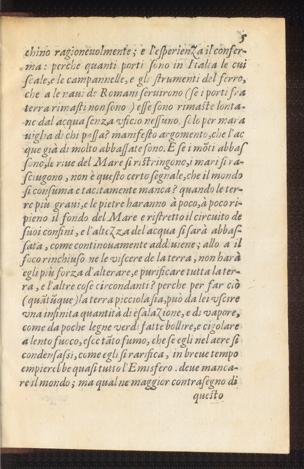 5
chino ragioneuolmente; e l'esperienza il confer-
ma: perche quanti porti sono in Italia le cui
scale, e le campannelle, e gli strumenti del ferro,
che a le naui de Romani seruirono (se i porti fra
terra rimasti non sono) esse sono rimaste lonta-
ne dal acqua senza vficio nessuno. solo per mara
uiglia di chi passa? manifesto argomento, che l'ac
que già di molto abbassate sono. E se i mōti abbas
sono, le riue del Mare si ristringono, i mari si ra-
sciugono, non è questo certo segnale, che il mondo
si consuma e tacitamente manca? quando le ter-
re più graui, e le pietre haranno à poco, à poco ri-
pieno il fondo del Mare e ristretto il circuito de
suoi confini, e l'altezza del acqua si sarà abbas-
sata, come continouamente addiuiene; allo a il
foco rinchiuso ne le viscere de la terra, non harà
egli più forza d'alterare, e purificare tutta la ter-
ra, e l'altre cose circondanti? perche per far ciò
(quātūque) la terra picciola sia, può da lei vscire
vna infinita quantità di esalazione, e di vapore,
come da poche legne verdi fatte bollire, e cigolare
a lento fuoco, esce tāto fumo, che se egli nel aere si
condensassi, come egli si rarifica, in breue tempo
empierebbe quasi tutto l'Emisfero. deue manca-
re il mondo; ma qual ne maggior contrasegno di
questo